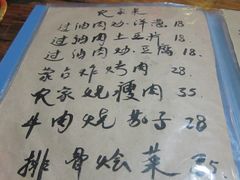 农家菜
过油肉炒洋葱 18
过油肉土豆片 18
过油肉炒豆腐 18.
蒙古炸烤肉 28.
农家烧瘦肉 35.
牛肉烧茄子 28
排骨烩菜 35.